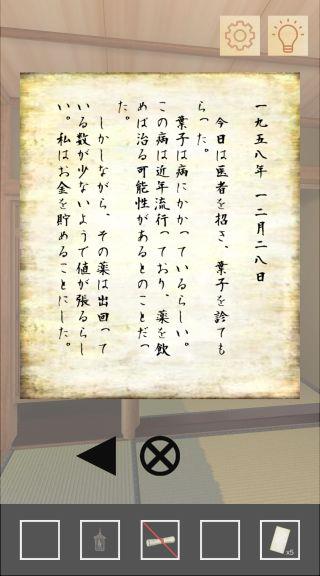 一九五八年　一二月二八日
　今日は医者を招き、葉子を診ても
らった。
　葉子は病にかかっているらしい。
この病は近年流行っており、薬を飲
めば治る可能性があるとのことだっ
た。
　しかしながら、その薬は出回って
いる数が少ないようで値が張るらし
い。私はお金を貯めることにした。
x5